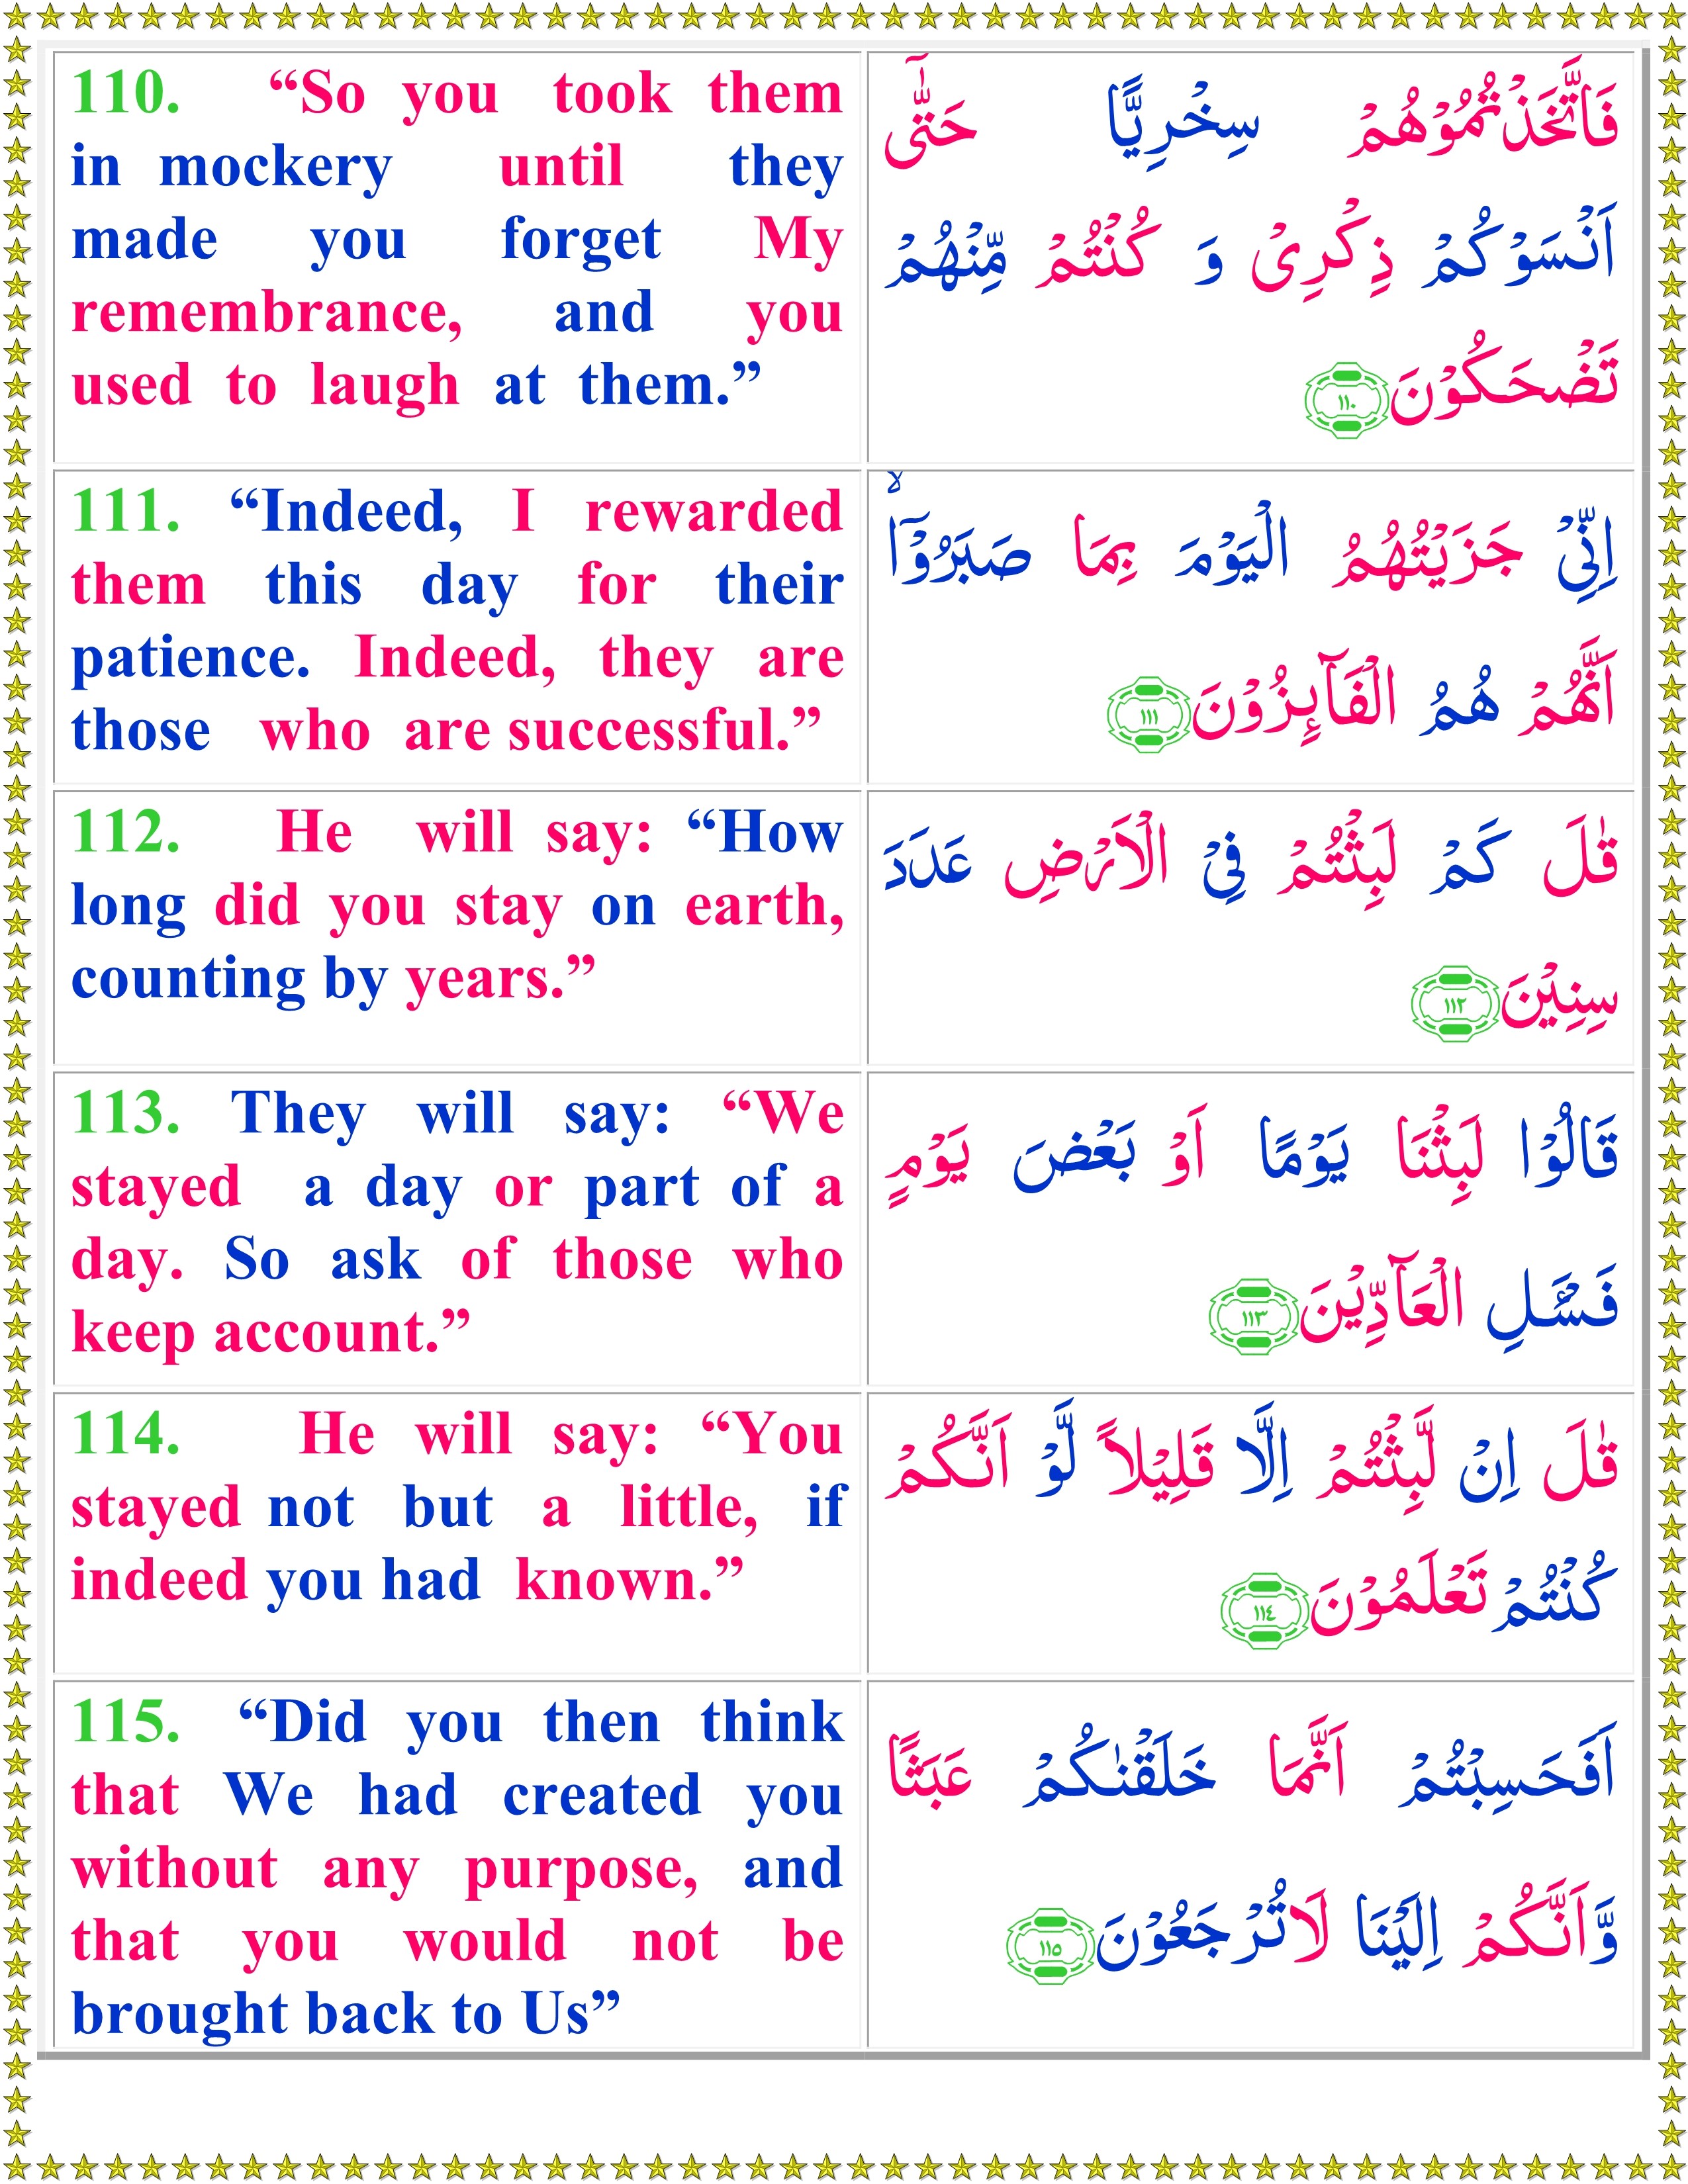 110. “So you took them
in mockery until they
made you forget My
remembrance, and you
used to laugh at them.”
فَاتَّخَذْتُمُوْهُمْ سِخْرِيًّا حَتّٰۤى
اَنْسَوْكُمْ ذِكْرِىْ وَ كُنْتُمْ مِّنْهُمْ
تَضْحَكُوْنَ ١١٠
111. “Indeed, I rewarded
them this day for their
patience. Indeed, they are
those who are successful.”
اِنِّىْ جَزَيْتُهُمُ الْيَوْمَ بِمَا صَبَرُوْۤا ۙ
اَنَّهُمْ هُمُ الْفَآٮِٕزُوْنَ ١١١
112. He will say: “How
long did you stay on earth,
counting by years.”
قٰلَ كَمْ لَبِثْتُمْ فِى الْاَرْضِ عَدَدَ
سِنِيْنَ ١١٢
113. They will say: “We
stayed a day or part of a
day. So ask of those who
keep account.”
قَالُوْا لَبِثْنَا يَوْمًا اَوْ بَعْضَ يَوْمٍ
فَسْـَٔـلِ الْعَآدِّيْنَ ١١٣
114. He will say: “You
stayed not but a little, if
indeed you had known.”
قٰلَ اِنْ لَّبِثْتُمْ اِلَّا قَلِيْلاً لَّوْ اَنَّكُمْ
كُنْتُمْ تَعْلَمُوْنَ ١١٤
115. “Did you then think
that We had created you
without any purpose, and
that you would not be
brought back to Us”
اَفَحَسِبْتُمْ اَنَّمَا خَلَقْنٰكُمْ عَبَثًا
وَّاَنَّكُمْ اِلَيْنَا لَا تُرْجَعُوْنَ ١١٥